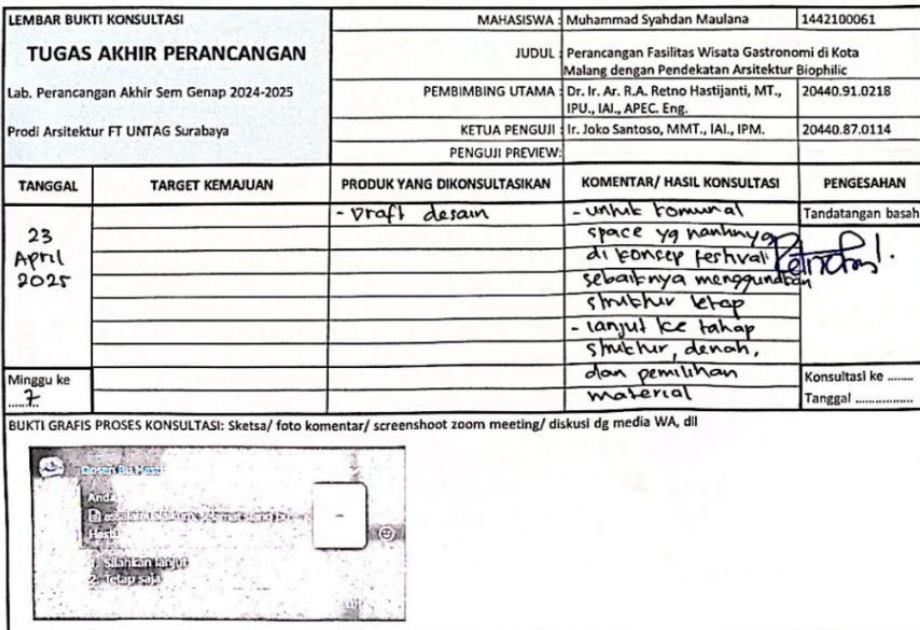 LEMBAR BUKTI KONSULTASI
TUGAS AKHIR PERANCANGAN
Lab. Perancangan Akhir Sem Genap 2024-2025
Prodi Arsitektur FT UNTAG Surabaya
MAHASISWA : Muhammad Syahdan Maulana 1442100061
JUDUL : Perancangan Fasilitas Wisata Gastronomi di Kota
Malang dengan Pendekatan Arsitektur Biophilic
PEMBIMBING UTAMA : Dr. Ir. Ar. R.A. Retno Hastijanti, MT., 20440.91.0218
IPU., IAI., APEC. Eng.
KETUA PENGUJI : Ir. Joko Santoso, MMT., IAI., IPM. 20440.87.0114
PENGUJI PREVIEW:
TANGGAL TARGET KEMAJUAN PRODUK YANG DIKONSULTASIKAN KOMENTAR/ HASIL KONSULTASI PENGESAHAN
23
April
2025
- Draft desain
- untuk komunal
space yg nantinya
di konsep festival
sebaiknya menggunakan
struktur tetap
- lanjut ke tahap
struktur, denah,
dan pemilihan
material
Tandatangan basah
Minggu ke
7
Konsultasi ke ........
Tanggal .................
BUKTI GRAFIS PROSES KONSULTASI: Sketsa/ foto komentar/ screenshoot zoom meeting/ diskusi dg media WA, dll
Dosen Bu Hasti
Anda
1. Silahkan lanjut
2. Tetap saja